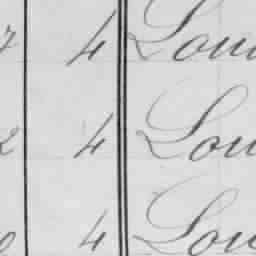 7 4 Lou
2 4 Lou
4 Lou